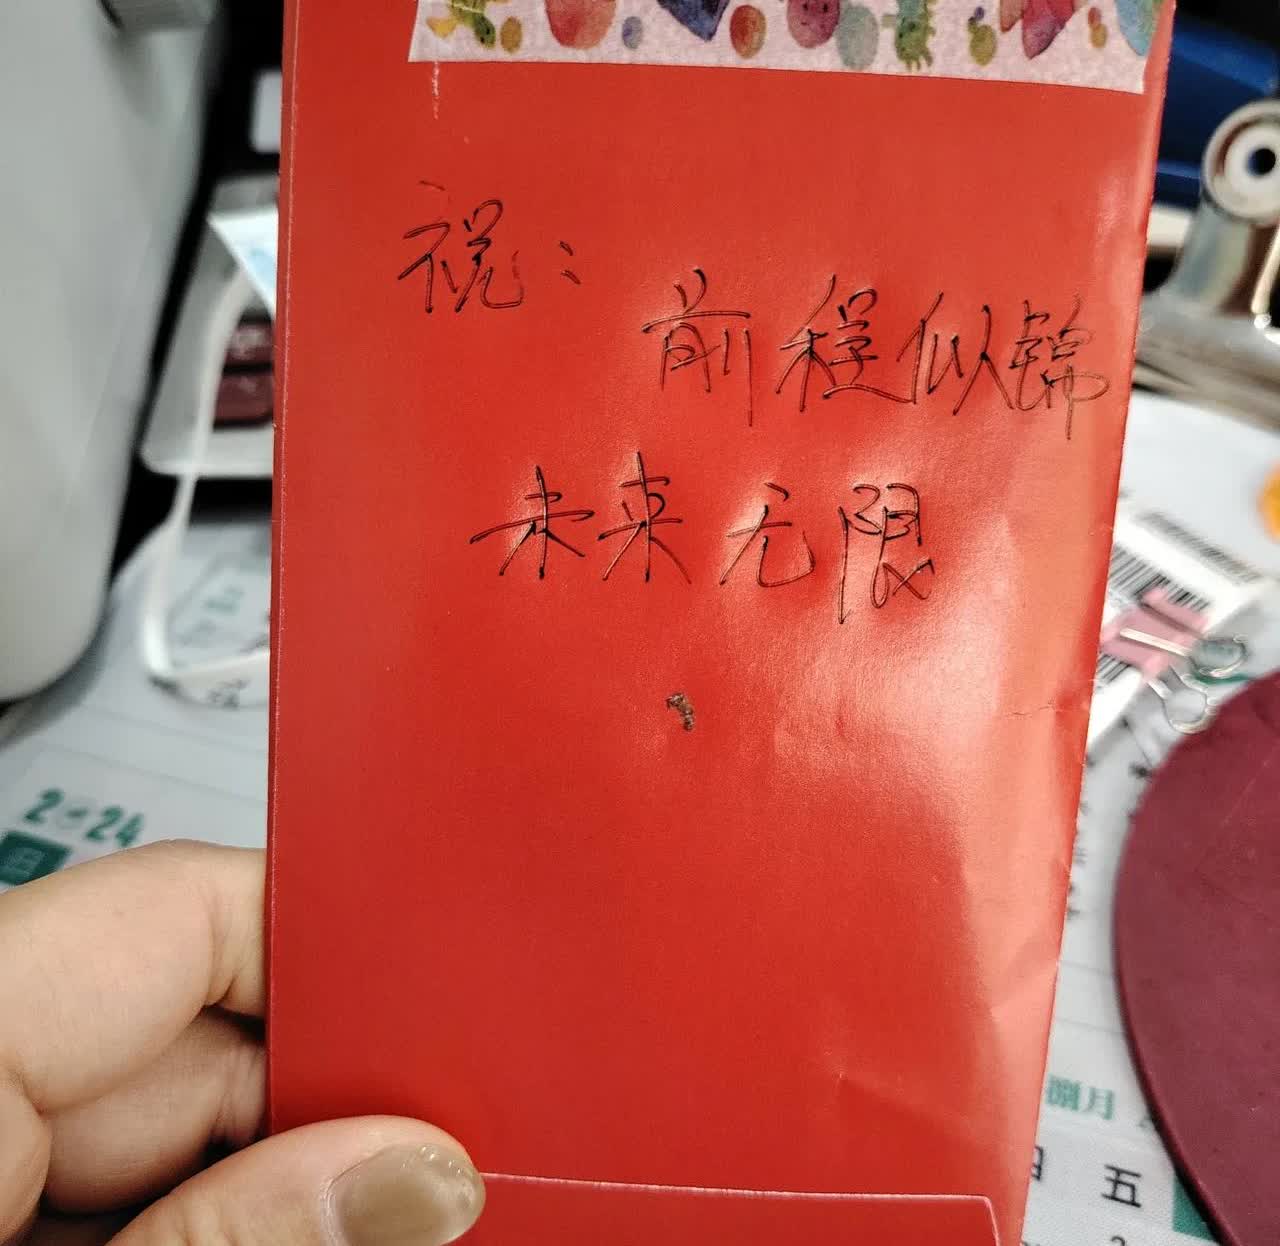 祝：
前程似锦
未来无限
2024
捌月
五